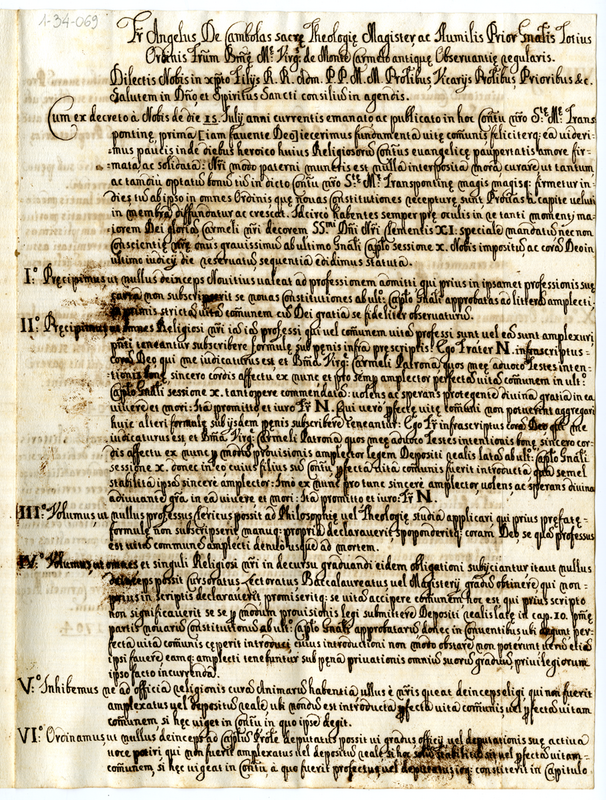 1-34-069
Fr Angelus De Cambolas sacrę Theologię Magister, ac Humilis Prior Gnalis Totius
Ordinis Frum Bmę Mę Virgs de Monte Carmelo antiquę Observantię regularis.
Dilectis Nobis in xpto Filijs R.R. Adm. P.P. M.M. Prolibus, Vicarijs Prolibus, Prioribus &c.
Salutem in Dno et Spiritus Sancti consilium in agendis.
Cum ex decreto à Nobis de die 15. Julij anni currentis emanato ac publicato in hoc Contu nro Stę Mę Trans
pontinę, prima [iam favente Deo] iecerimus fundamenta vitę comunis, feliciterq; ea videri-
mus paucis inde diebus heroico huius Religiosorum contus evangelicę paupertatis amore fir-
mata, ac solidata: Nri modo paterni muneris est nulla interposita mora curare ut tantum
ac tamdiu optatum bonum non in dicto contu nro Stę Mę Transpontinę magis magisq; firmetur in
dies, sed ab ipso in omnes Ordinis que novas constitutiones recepturę sunt Prolas à capite veluti
in membra diffundatur ac crescat. Idcirco habentes semper prę oculis in re tanti momenti ma-
iorem Dei gloriam, Carmeli nri decorem SSmi Dni Nri Clementis XI. speciale mandatum nec non
conscientię nrę onus gravissimum ab ultimo Gnali caplo sessione X. Nobis impositum, ac coram Deo in
ultimo iudicij die reservatum sequentia edidimus statuta.
I.° Pręcipimus ut nullus deinceps Novitius valeat ad professionem admitti qui prius in ipsamet professionis suę
non subscripserit se novas constitutiones ab ult.° caplo Gnali approbatas ad litteram amplecti,
in primis strictam vitę comunem cum Dei gratia se fideliter observaturum.
II.° Pręcipimus ut omnes Religiosi nri iam iam professi qui vel comunem vitam professi sunt vel eam sunt amplexuri
pnti teneantur subscribere formulę sub pęnis infra prescriptis: Ego Frater N. infrascriptus
coram Deo qui me iudicaturus est et Bma Virge Carmeli Patrona quos meę adduco testes inten-
tionis bonę sincero cordis affectu ex nunc et pro semp amplector perfectam vitam comunem in ult.°
Caplo Gnali sessione X. tantopere commendatam: volens ac sperans protegente divina gratia in ea
vivere et mori: Ita promitto et iuro Fr N. Qui vero pfectę vitę comuni non potuerint aggregari
huic alteri formulę sub ijsdem pęnis subscribere teneantur: Ego Fr infrascriptus coram Deo qui me
iudicaturus est et Bma Virge Carmeli Patrona quos meę adduco Testes intentionis bonę, sincero cor-
dis affectu ex nunc p modum provisionis amplector legem Depositi realis latam ab ult.° caplo Gnali
sessione X. donec in eo cuius filius sum contu pfecta vita comunis fuerit introducta quam semel
stabilitam ipsam sincerè amplectar: Imò ex nunc pro tunc sincerè amplector volens ac sperans divina
adiuvante gra. in ea vivere et mori: Ita promitto et iuro: Fr N.
III.° Volumus, ut nullus professus clericus possit ad Philosophię vel Theologię studia applicari qui prius pręfatę
formulę non subscripserit manuq; propria declaraverit spoponderitq; coram Deo se quam professus
est vitam communem amplecti denuò usque ad mortem.
IV.° Volumus, ut omnes et singuli Religiosi nri in decursu graduandi eidem obligationi subijciantur ita ut nullus
deinceps possit cursoratus, Lectoratus Baccalaureatus vel Magisterij gradum obtinere qui non
prius in scriptis declaraverit promiseritq; se vitam accipere comunem hoc est qui prius scripto
non significaverit se se p modum provisionis legi submittere Depositi realis latę in cap. 10. pmę
partis novarum constitutionum ab ult.° caplo Gnali approbatarum donec in conventibus ubi degunt per-
fecta vita comunis cęperit introduci, cuius introductioni non modo obstare non poterunt verum etiam
ipsi favere eamq; amplecti tenebuntur sub pęna privationis omnium suorum graduum privilegiorum
ipso facto incurrenda.
V.° Inhibemus ne ad officia religionis curam Animarum habentia ullus è nris queat deinceps eligi qui non fuerit
amplexatus vel depositum reale ubi nondum est introducta pfecta vita comunis vel pfectam vitam
comunem, si hęc viget in contu in quo ipse degit.
VI.° Ordinamus ut nullus deinceps ad caplum Prole deputatus possit vi gradus officij vel deputationis suę activa
voce potiri qui non fuerit amplexatus vel depositum reale vel pfectam vitam
comunem, si hęc vigeat in contu, a quo fuerit constiterit in capitulo